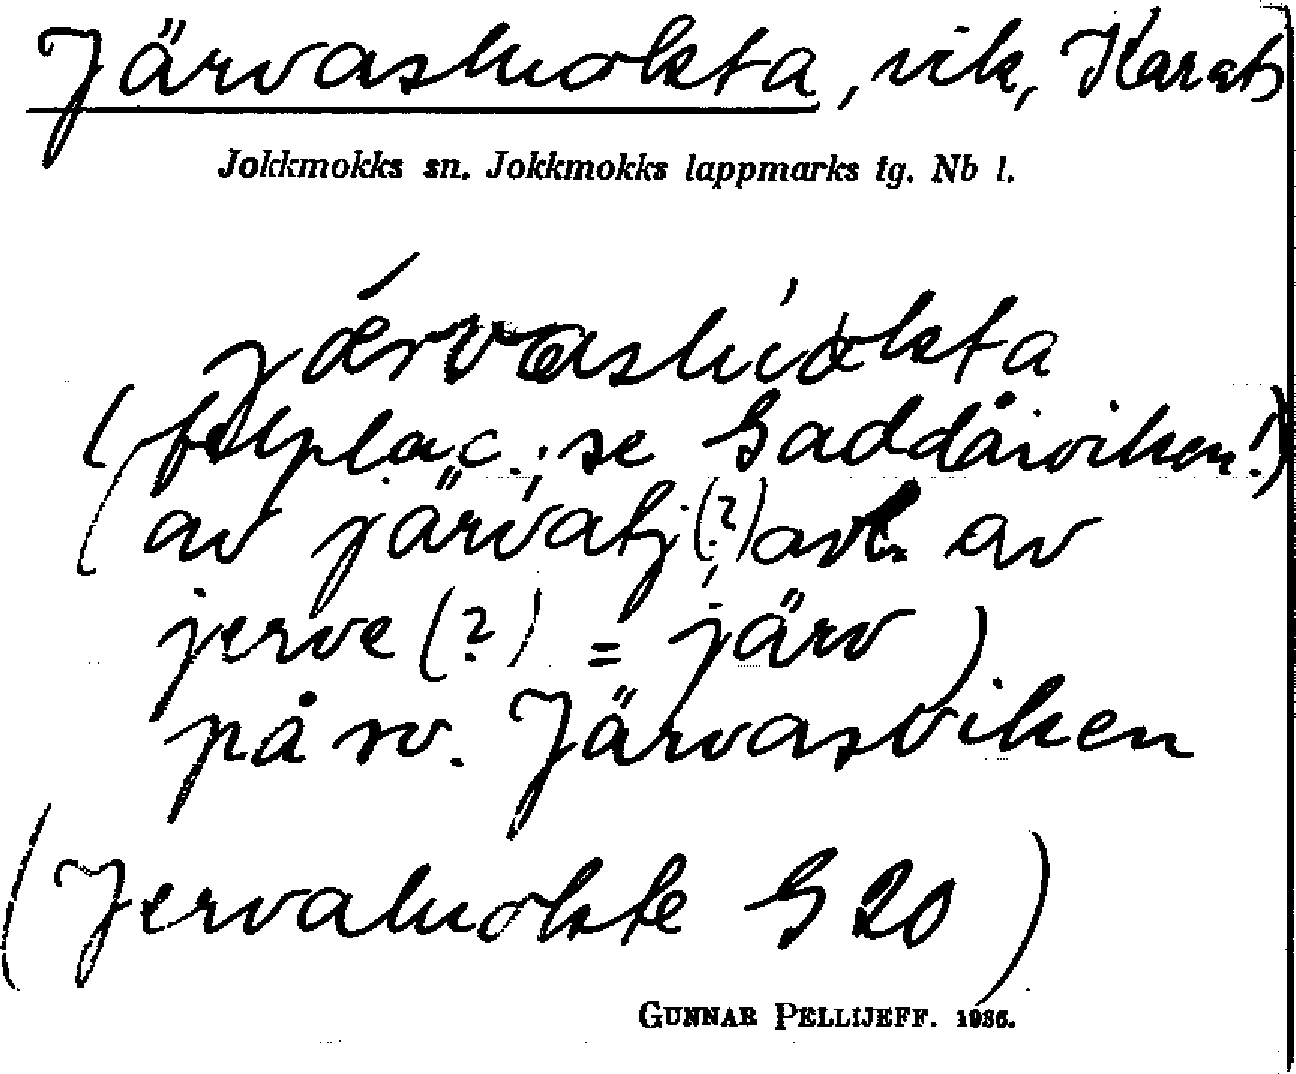 Järvasluokta, vik, Karats
Jokkmokks sn. Jokkmokks lappmarks tg. Nb l.
järvasluokta
(felplac.; se Gaddåiviken!)
(av järvatj (?) avl. av
jerve (?) = järv)
på sv. Järvasviken
(Jervaluokte G 20)
GUNNAR PELLIJEFF. 1936.